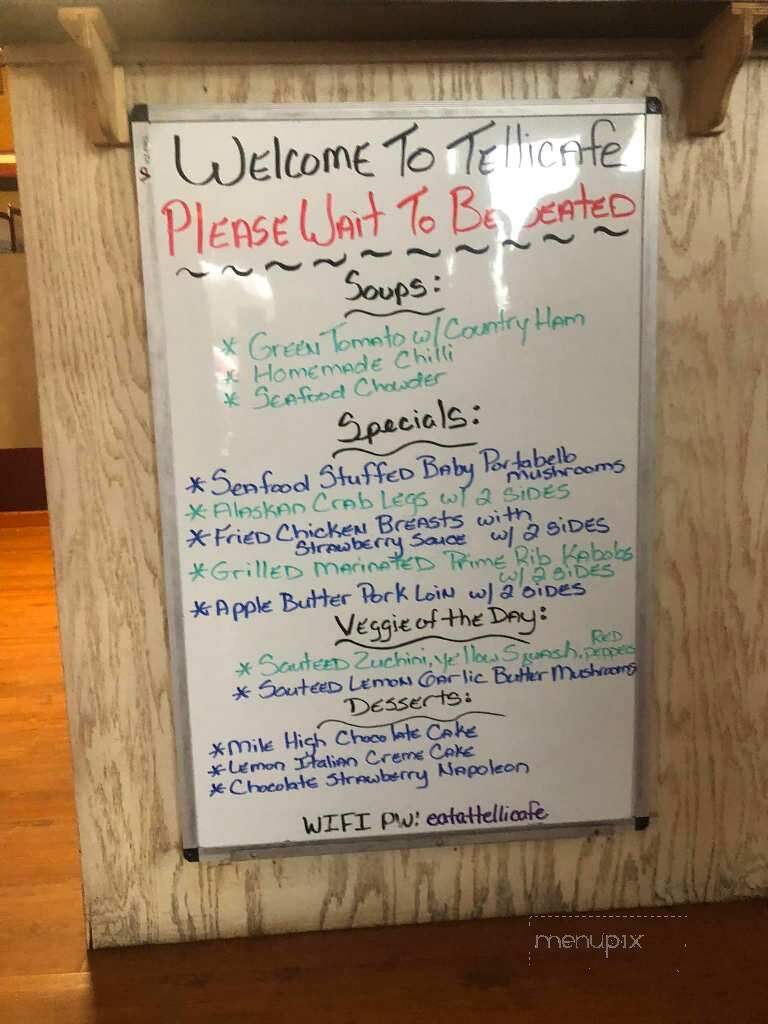 Welcome To Tellicafe
Please Wait To Be Seated
Soups:
* Green Tomato w/ Country Ham
* Homemade Chilli
* Seafood Chowder
Specials:
* Seafood Stuffed Baby Portabello
mushrooms
* Alaskan Crab Legs w/ 2 sides
* Fried Chicken Breasts with
Strawberry Sauce w/ 2 sides
* Grilled marinated Prime Rib Kabobs
w/ 2 sides
* Apple Butter Pork Loin w/ 2 sides
Veggie of the Day:
* Sauteed Zuchini, yellow Squash, Red
Peppers
* Sauteed Lemon Garlic Butter Mushrooms
Desserts:
* Mile High Chocolate Cake
* Lemon Italian Creme Cake
* Chocolate Strawberry Napoleon
WIFI PW: eatattellicafe
menupix